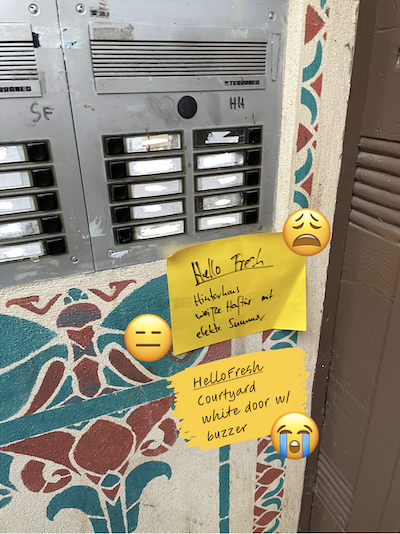 TERRANEO
TERRANEO
SF
HH
Hello Fresh
Hinterhaus
weiße Hoftür mit
elektr. Summer
HelloFresh
Courtyard
white door w/
buzzer